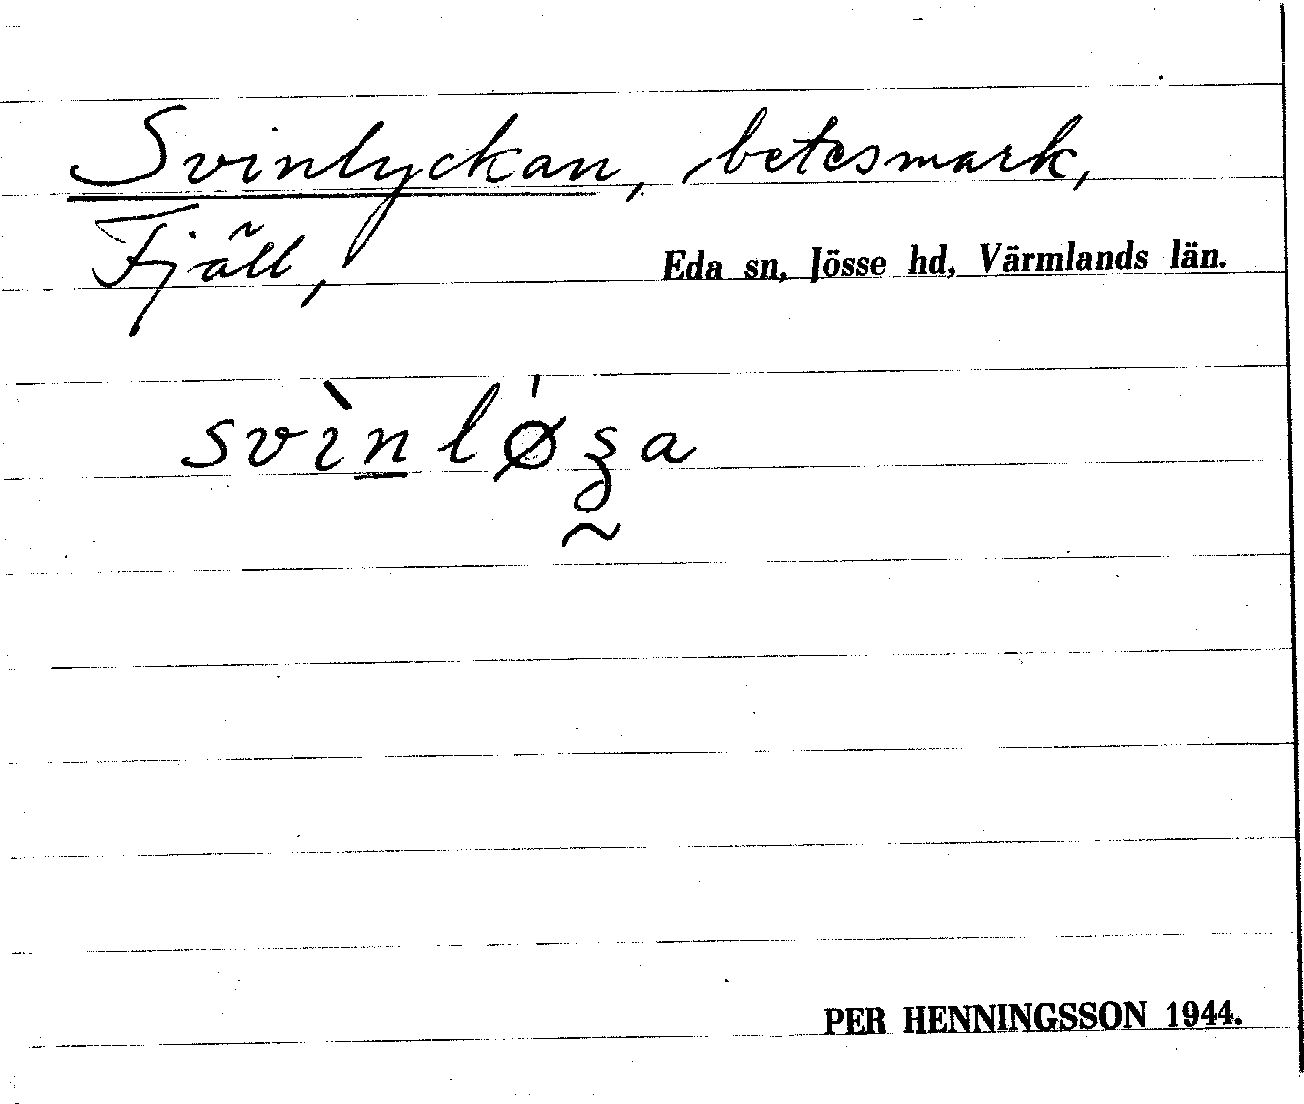 Svinlyckan, betesmark,
Fjäll, Eda sn, Jösse hd, Värmlands län.
PER HENNINGSSON 1944.